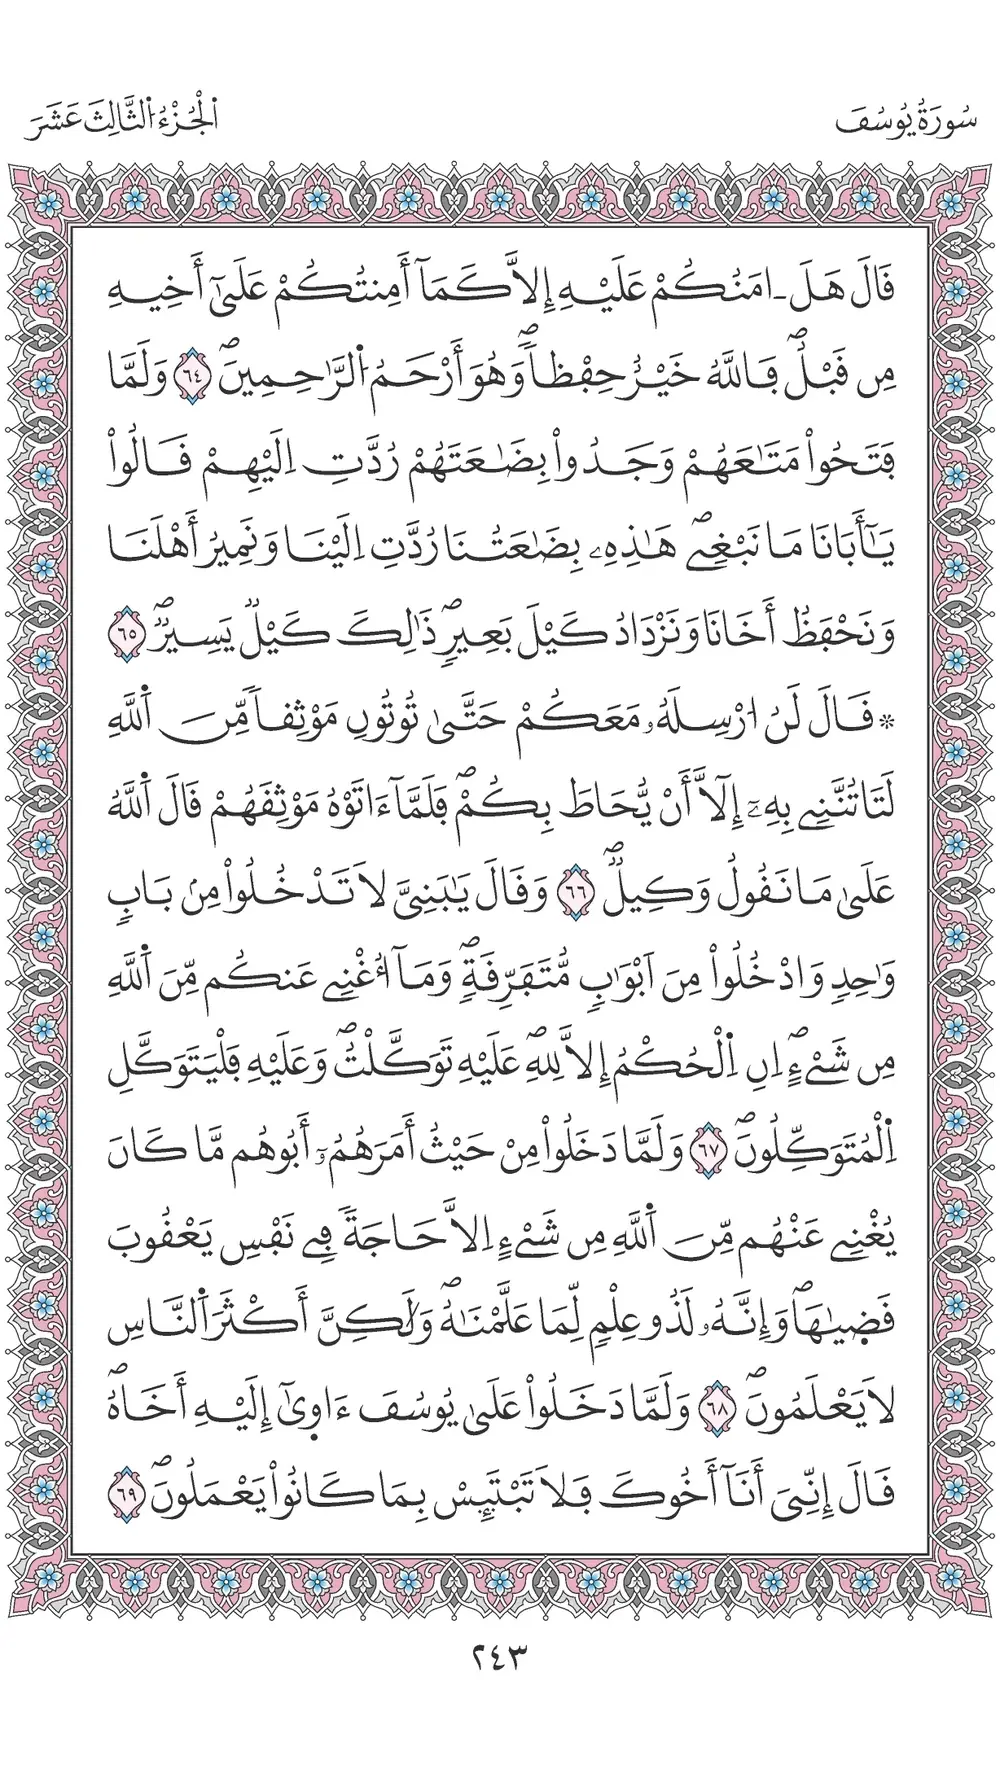 سُورَةُ يُوسُفَ
اَ۬لْجُزْءُ اُ۬لثَّالِثَ عَشَرَ
قَالَ هَلَ ـ امَنُكُمْ عَلَيْهِ إِلَّا كَمَآ أَمِنتُكُمْ عَلَىٰٓ أَخِيهِ
مِن قَبْلُۖ فَاللَّهُ خَيْرٌ حِفْظاٗۖ وَهُوَ أَرْحَمُ اُ۬لرَّٰحِمِينَۖ ٦٤ وَلَمَّا
فَتَحُواْ مَتَٰعَهُمْ وَجَدُواْ بِضَٰعَتَهُمْ رُدَّتِ اِلَيْهِمْ قَالُواْ
يَٰٓأَبَانَا مَا نَبْغِےۖ هَٰذِهِۦ بِضَٰعَتُنَا رُدَّتِ اِلَيْنَا وَنَمِيرُ أَهْلَنَا
وَنَحْفَظُ أَخَانَا وَنَزْدَادُ كَيْلَ بَعِيرٖۖ ذَٰلِكَ كَيْلٞ يَسِيرٞۖ ٦٥
* قَالَ لَنُ ا۟رْسِلَهُۥ مَعَكُمْ حَتَّىٰ تُوتُونِ مَوْثِقاٗ مِّنَ اَ۬للَّهِ
لَتَاتُنَّنِے بِهِۦٓ إِلَّآ أَنْ يُّحَاطَ بِكُمْۖ فَلَمَّآ ءَاتَوْهُ مَوْثِقَهُمْ قَالَ اَ۬للَّهُ
عَلَىٰ مَا نَقُولُ وَكِيلٞۖ ٦٦ وَقَالَ يَٰبَنِيَّ لَا تَدْخُلُواْ مِنۢ بَابٖ
وَٰحِدٖ وَادْخُلُواْ مِنَ اَبْوَٰبٖ مُّتَفَرِّقَةٖۖ وَمَآ أُغْنِے عَنكُم مِّنَ اَ۬للَّهِ
مِن شَےْءٍۖ اِنِ اِ۬لْحُكْمُ إِلَّا لِلهِۖ عَلَيْهِ تَوَكَّلْتُۖ وَعَلَيْهِ فَلْيَتَوَكَّلِ
اِ۬لْمُتَوَكِّلُونَۖ ٦٧ وَلَمَّا دَخَلُواْ مِنْ حَيْثُ أَمَرَهُمُۥٓ أَبُوهُم مَّا كَانَ
يُغْنِے عَنْهُم مِّنَ اَ۬للَّهِ مِن شَےْءٍ اِلَّا حَاجَةٗ فِے نَفْسِ يَعْقُوبَ
قَضَيٰهَاۖ وَإِنَّهُۥ لَذُو عِلْمٖ لِّمَا عَلَّمْنَٰهُۖ وَلَٰكِنَّ أَكْثَرَ اَ۬لنَّاسِ
لَا يَعْلَمُونَۖ ٦٨ وَلَمَّا دَخَلُواْ عَلَىٰ يُوسُفَ ءَاو۪ىٰٓ إِلَيْهِ أَخَاهُۖ
قَالَ إِنِّيَ أَنَآ أَخُوكَ فَلَا تَبْتَئِسْ بِمَا كَانُواْ يَعْمَلُونَۖ ٦٩
٢٤٣